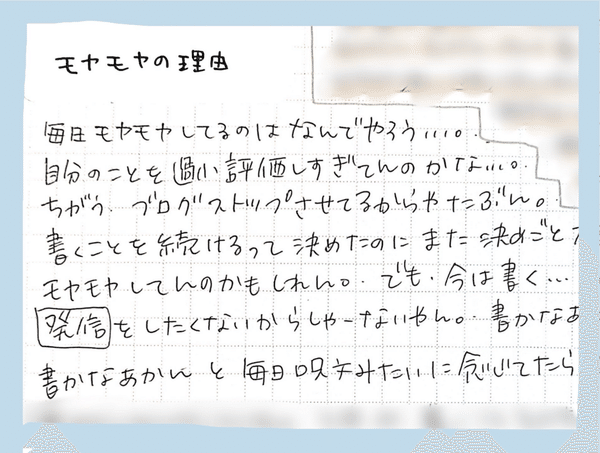 モヤモヤの理由
毎日モヤモヤしてるのはなんでやろう…。
自分のことを過小評価しすぎてんのかな…。
ちがう、ブログストップさせてるからやたぶん。
書くことを続けるって決めたのにまた決めごと
モヤモヤしてんのかもしれん。でも、今は書く…
発信をしたくないからしゃーないやん。書かなあ
書かなあかんと毎日呪文みたいに念じてたら